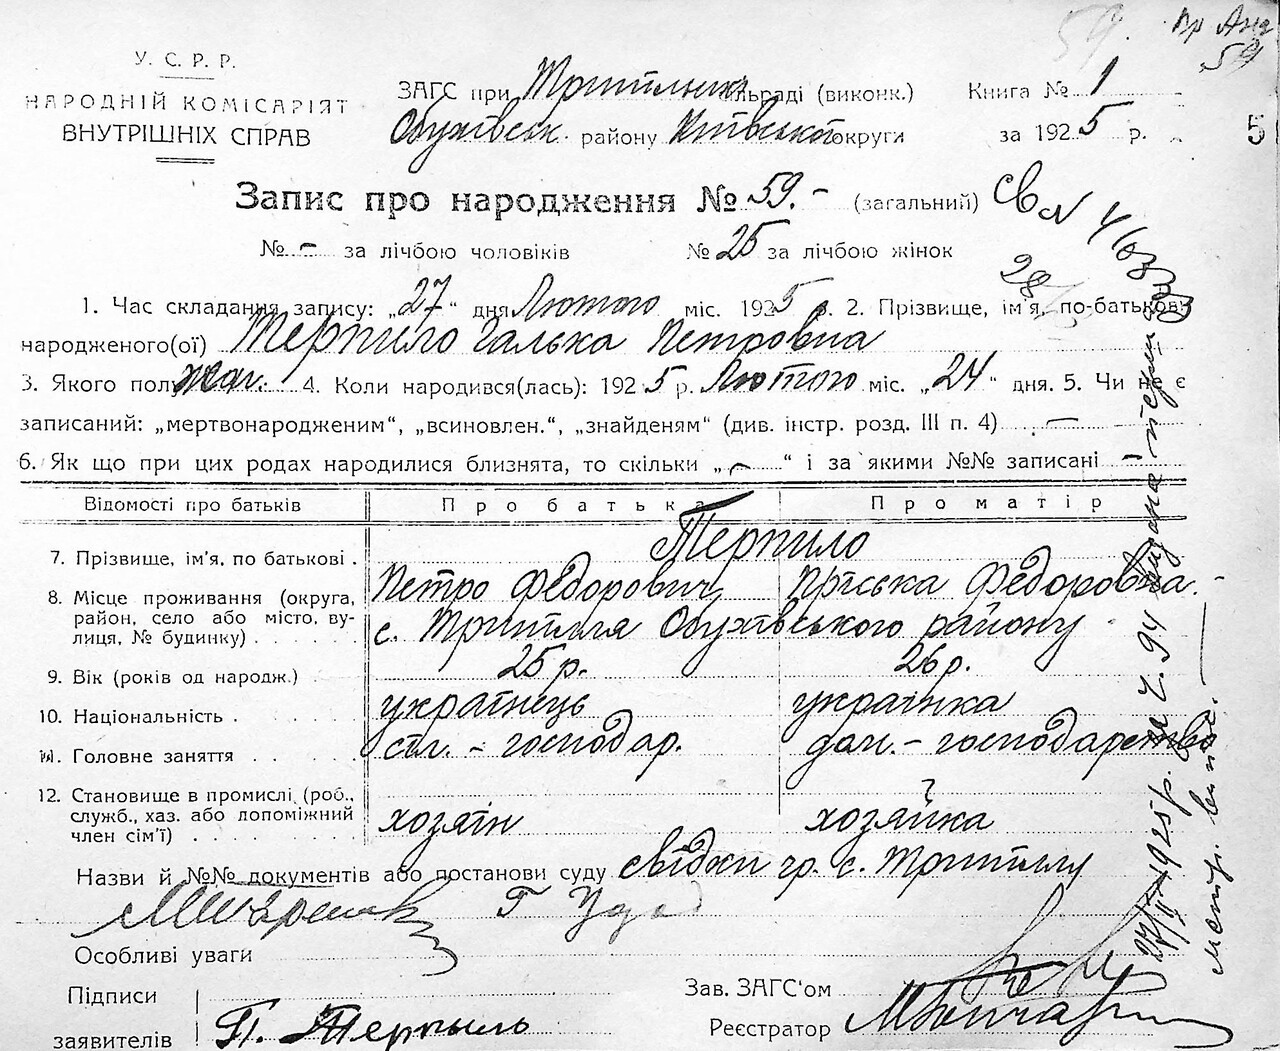 59.
59
У. С. Р. Р.
НАРОДНІЙ КОМІСАРІЯТ
ВНУТРІШНІХ СПРАВ
ЗАГС при Трипільськ ільраді (виконк.)
Книга № 1
Обухівськ. району Київської округи
за 1925 р.
5
Запис про народження № 59.- (загальний)
№ - за лічбою чоловіків № 25 за лічбою жінок
28
1. Час складання запису: „27“ дня Лютого міс. 1925 р. 2. Прізвище, ім'я, по-батькові
народженого(ої) Терпило Галька Петровна
3. Якого полу жін. 4. Коли народився(лась): 1925 р. Лютого міс. „24“ дня. 5. Чи не є
записаний: „мертвонародженим“, „всиновлен.“, „знайденям“ (див. інстр. розд. III п. 4) —
6. Як що при цих родах народилися близнята, то скільки „-“ і за якими №№ записані -
Відомості про батьків Про батька Про матір
7. Прізвище, ім'я, по батькові . Терпило
Петро Федорович Пріська Федоровна.
8. Місце проживання (округа, район, село або місто, ву-
лиця, № будинку) . . . . . с. Трипілля Обухівського району
9. Вік (років од народж.) 25 р. 26 р.
10. Національність . українець українка
11. Головне заняття . . . . . сіл.-господар. дом.-господарство
12. Становище в промислі (роб.,
служб., хаз. або допоміжний
член сім'ї) . . . . . хозяїн хозяйка
Назви й №№ документів або постанови суду свідки гр. с. Трипілля
Особливі уваги
Підписи
заявителів П. Терпыль
Зав. ЗАГС'ом
Реєстратор
27/II 1925 р. за Ч. 94